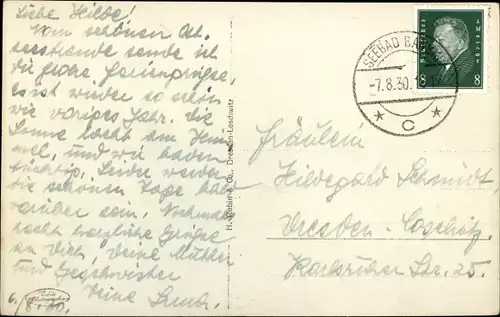 Liebe Hilde!
Vom schönen Ost-
seestrande sende ich
dir frohe Feriengrüße,
es ist wieder so schön
wie voriges Jahr. Die
Sonne lacht am Him-
mel, und wir baden
tüchtig. Leider werden
die schönen Tage bald
vorüber sein. Nochmals
recht herzliche Grüße
an Dich, Deine Mutter
und Geschwister
Deine
6./8.30.
H. & Co., Dresden-Loschwitz
SEEBAD
-7.8.30.
* C *
Deutsches Reich
8 8
Fräulein
Hildegard Schmidt
Dresden-Coschütz
Karlsruher Str. 25.